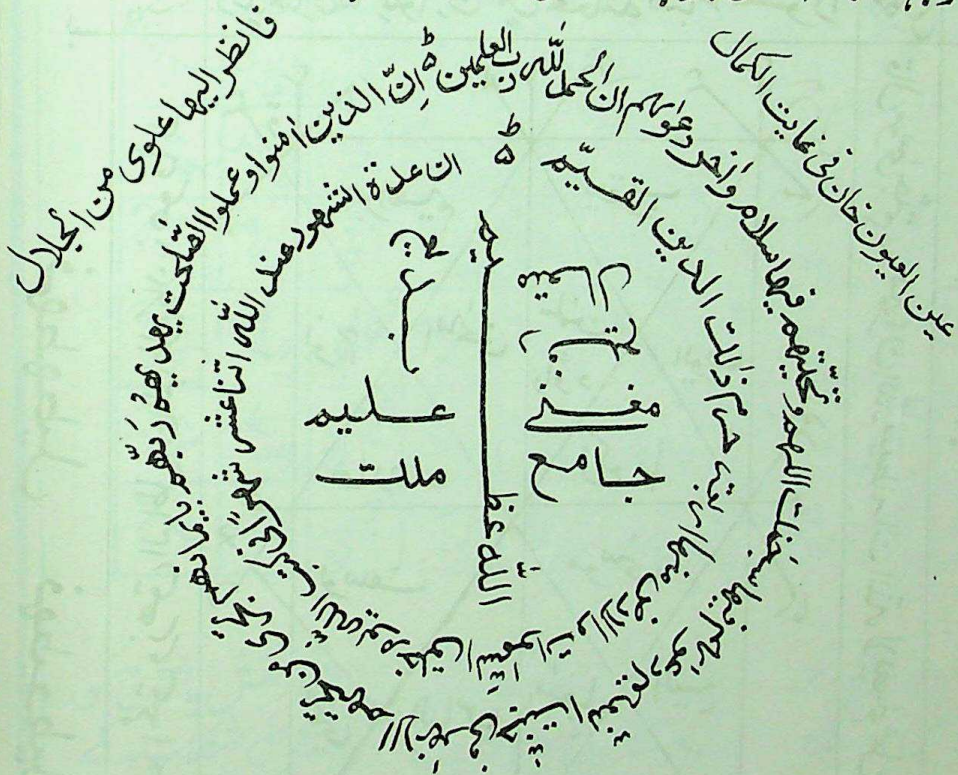 عين العيون خان فی غايت الكمال
فانظر اليها علوی من الجلال
اِنّ الذين اٰمنوا و عملوا الصّٰلحٰت يهديهم ربّهم بايمانهم تجری من تحتهم الانهٰر فی جنّٰت النّعيم دعوٰهم فيها سبحٰنك اللهم و تحيّتهم فيها سلام واٰخر دعوٰىهم ان الحمد للّٰه رب العٰلمين
ان عدّة الشهور عند اللّٰه اثنا عشر شهرًا فی كتٰب اللّٰه يوم خلق السّمٰوات والارض منها اربعة حرم ذٰلك الدين القسيّم
متعال
مغنی
جامع
عليم
ملك
اللّٰه عظيم